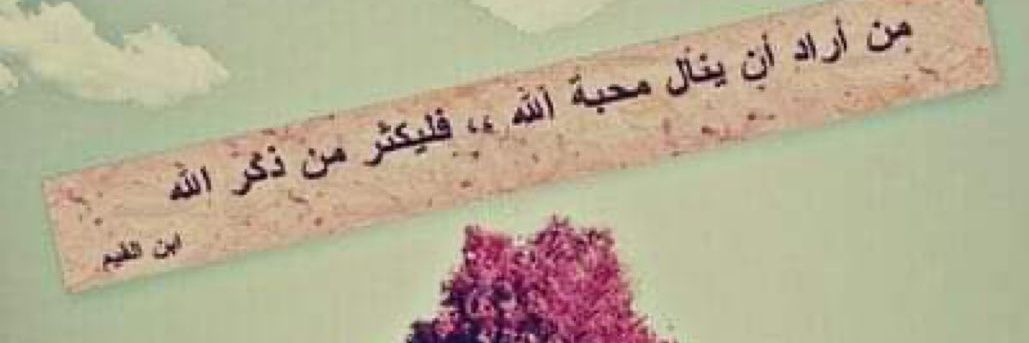 من أراد أن ينال محبة الله ،، فليكثر من ذكر الله
ابن القيم